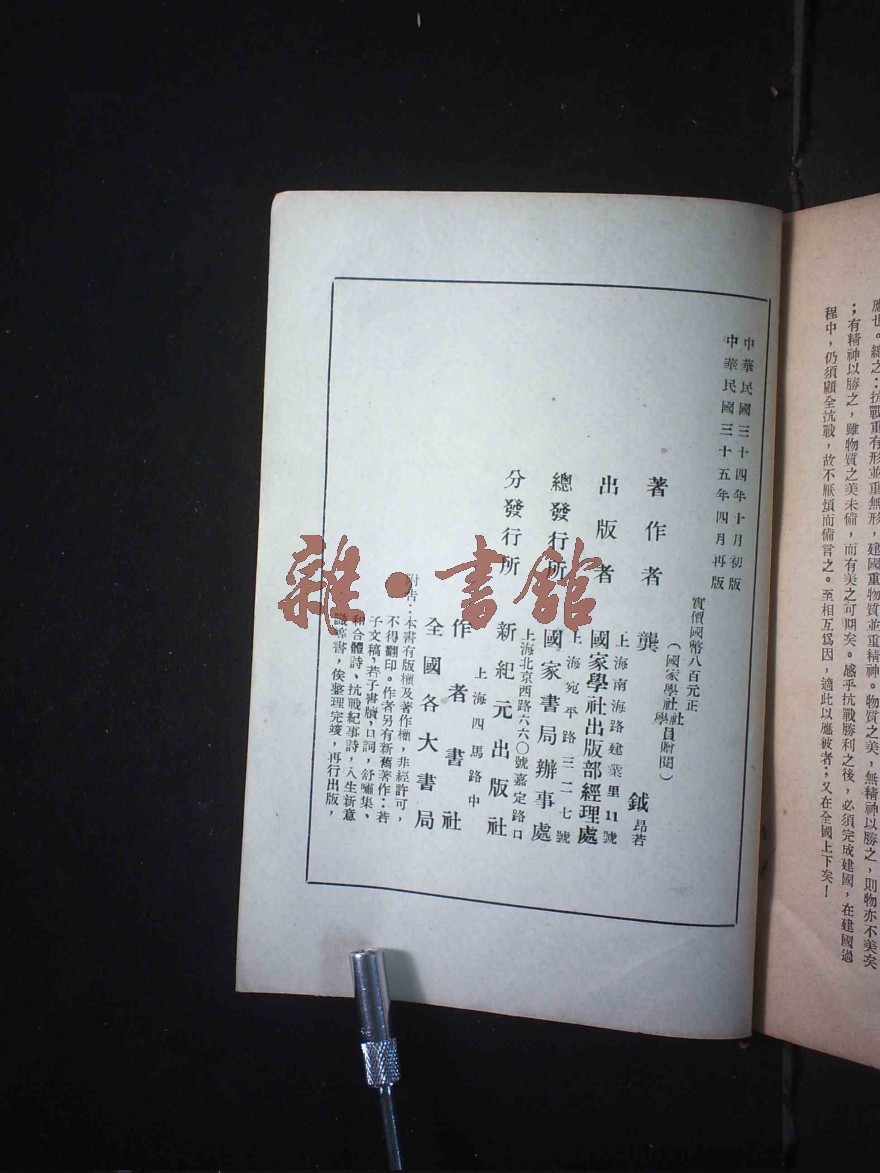 應也。總之：抗戰重有形並重無形，建國重物質並重精神。物質之美，無精神以勝之，則物亦不美矣
；有精神以勝之，雖物質之美未備，而有美之可期矣。感乎抗戰勝利之後，必須完成建國，在建國過
程中，仍須顧全抗戰，故不厭煩而備言之。至相互爲因，適此以應彼者；又在全國上下矣！
中華民國三十四年十月初版
中華民國三十五年四月再版
實價國幣八百元正
（國家學社社員贈閱）
著作者 龔鉞昂若
上海南海路建業里11號
出版者 國家學社出版部經理處
上海宛平路三二七號
總發行所 國家書局辦事處
上海北京西路六六〇號嘉定路口
分發行所 新紀元出版社
上海四馬路中
作者書社
全國各大書局
附告：本書有版權及著作權，非經許可，
不得翻印。作者另有新舊著作：若
子文稿，若子書牘，口詞，舒嘯集、
和合體詩、抗戰紀事詩，人生新意
識等書，俟整理完竣，再行出版，
雜·書館